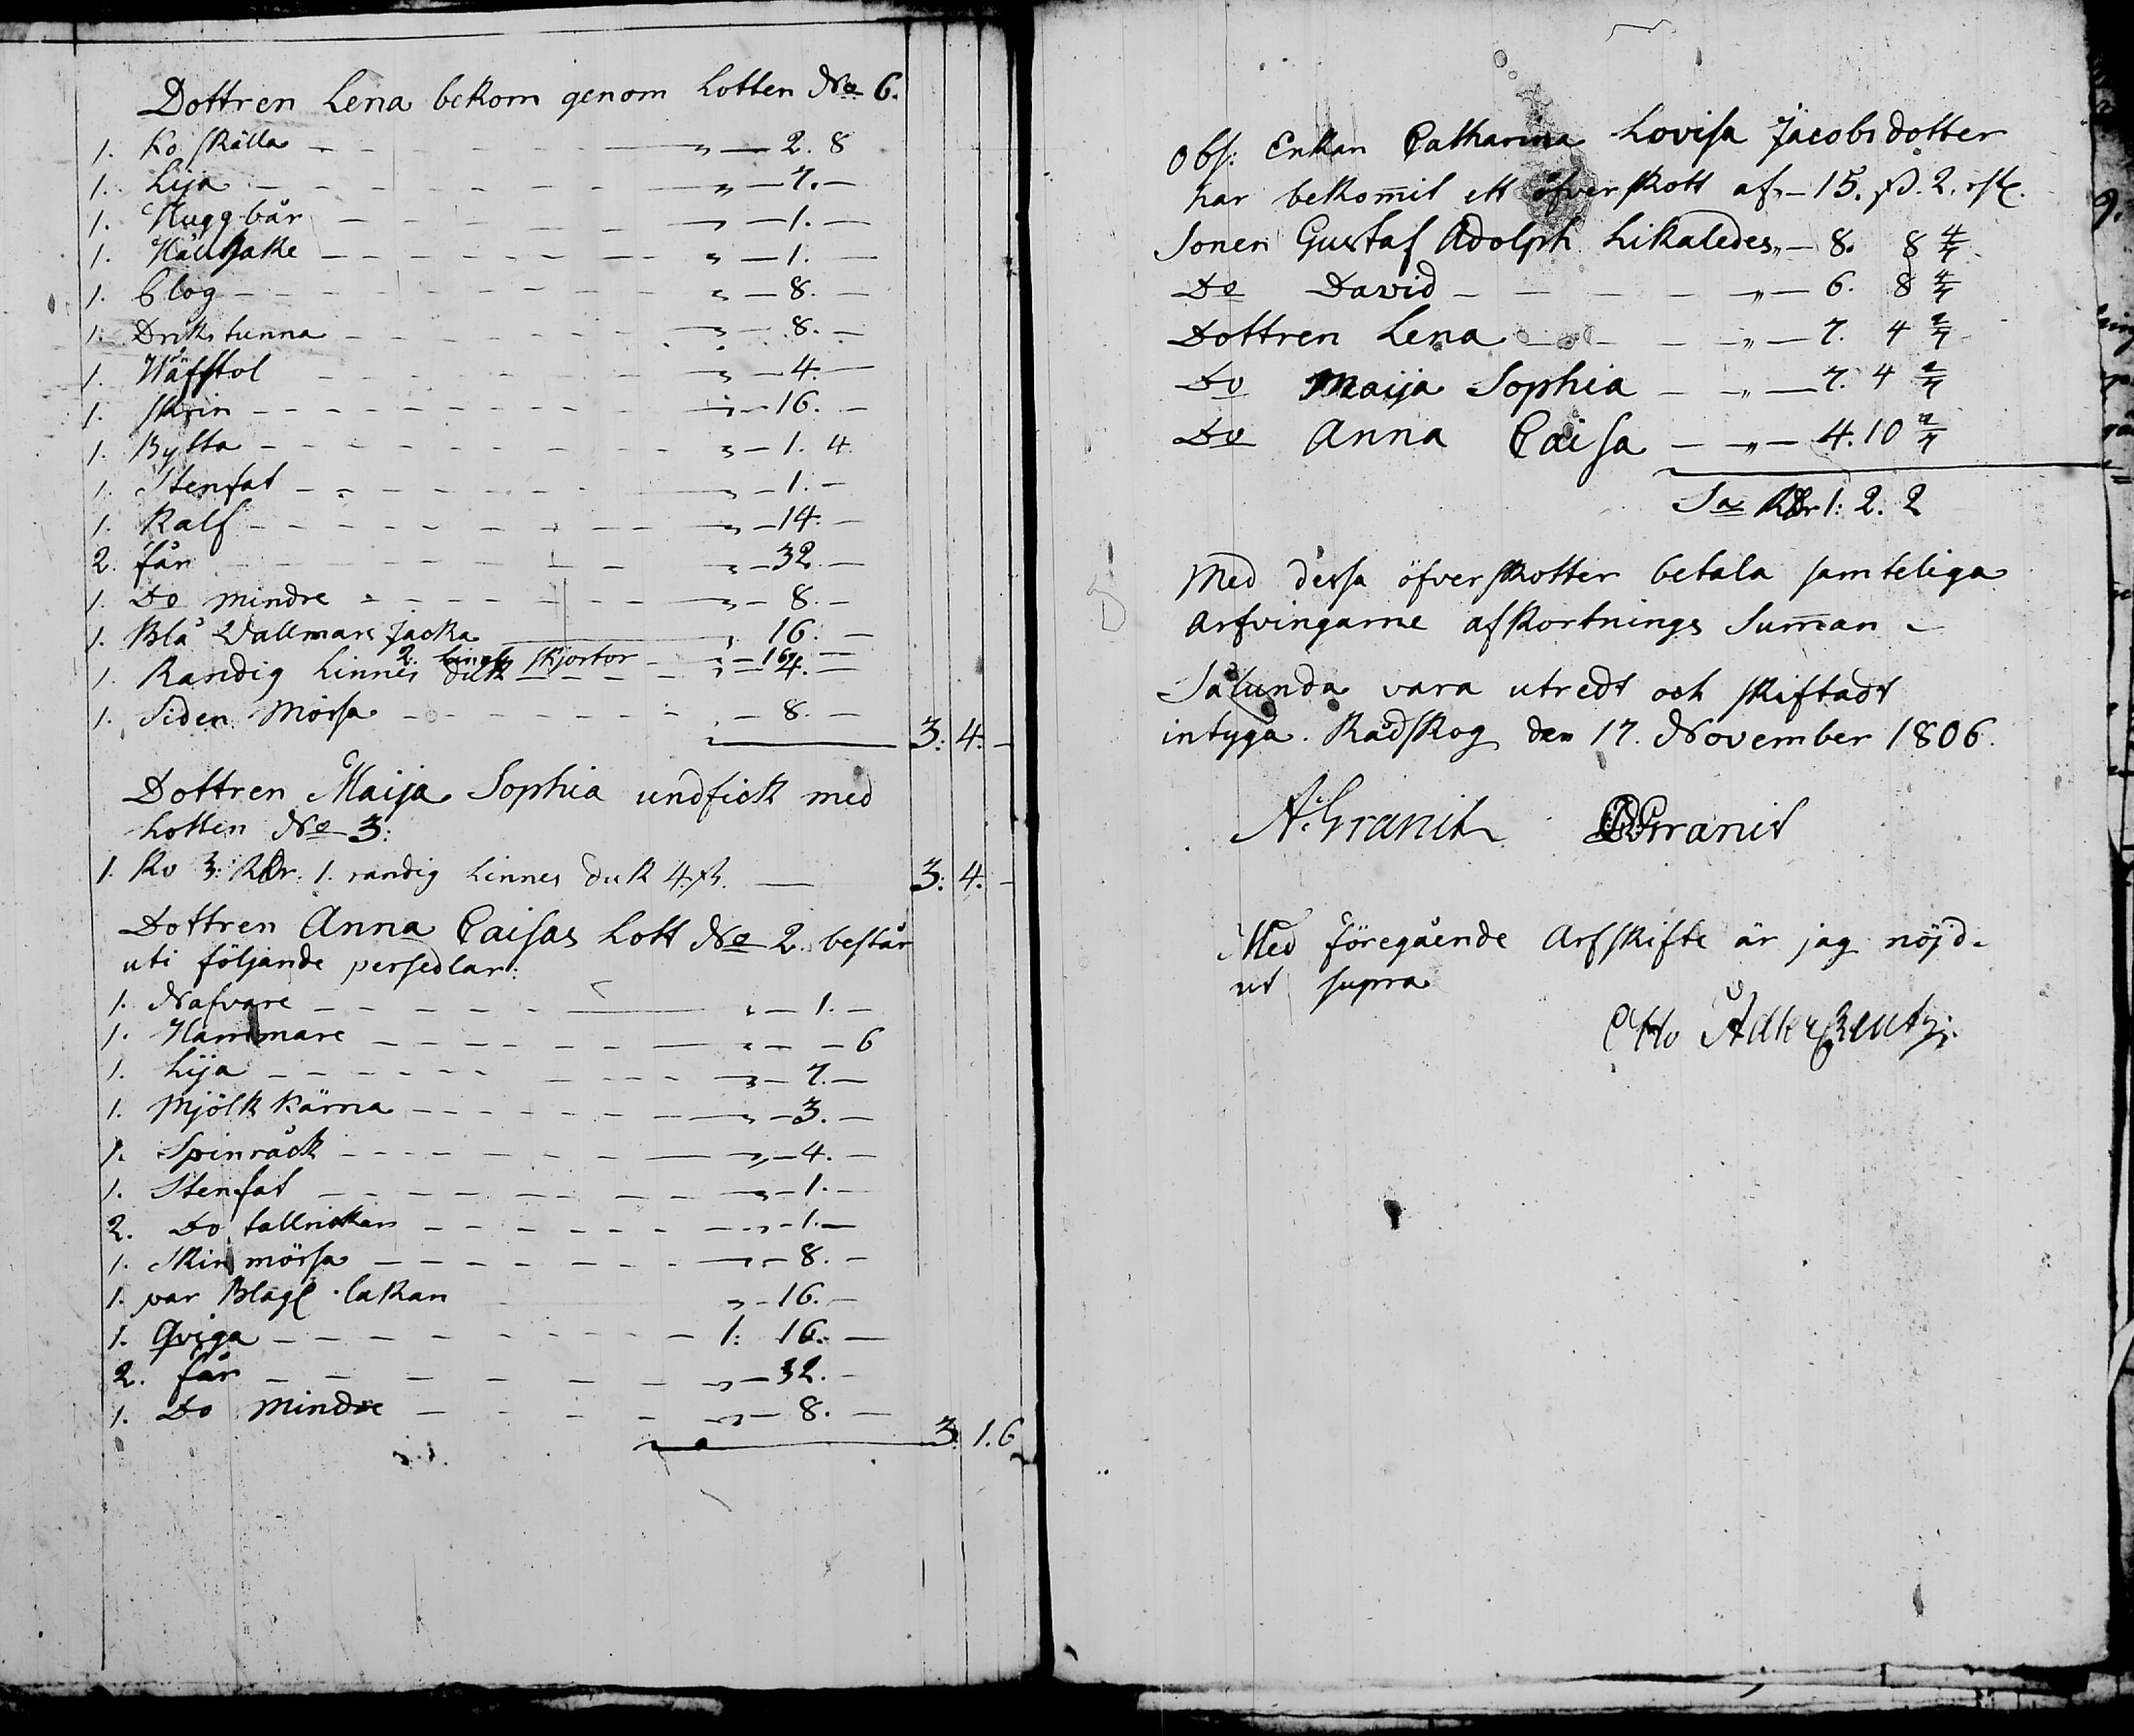 Dottren Lena bekom genom Lotten No 6.
1. Ko skälla - - - " - 2. 8
1. Lija - - - " - 7. -
1. Huggbår - - - " - 1. -
1. - - - " - 1. -
1. Plog - - - " - 8. -
1. Driks tunna - - - " - 8. -
1. Wäfstol - - - " - 4. -
1. Skrin - - - " - 16. -
1. Bytta - - - " - 1. 4
1. Stenfat - - - " - 1. -
1. Kalf - - - " - 14. -
2. får - - - " - 32. -
1. Do mindre - - - " - 8. -
1. Blå Wallmars Jacka - " - 16. -
2. skjortor - " - 16. -
1. Randig Linnes duk - - - " - 4. -
1. Siden Mössa - - - " - 8. -
3: 4. -
Dottren Maija Sophia undfick med
Lotten No 3:
1. Ko 3: RDr. 1. randig Linnes duk 4. ß. - 3: 4. -
Dottren Anna Caisas Lott No 2. består
uti följande persedlar:
1. Nafvare - - - " - 1. -
1. Hammare - - - " - - 6
1. Lija - - - " - 7. -
1. Mjölk kärna - - - " - 3. -
1. Spinråck - - - " - 4. -
1. Stenfat - - - " - 1. -
2. Do tallrickar - - - " - 1. -
1. Skin mössa - - - " - 8. -
1. par Blågl. lakan " - 16. -
1. Qviga - - - 1: 16. -
2. får - - - " - 32. -
1. Do Mindre - - - " - 8. -
3. 1. 6
Obs: Enkan Catharina Lovisa Jacobsdotter
har bekommit ett öfverskott af " - 15. ß. 2. rst.
Sonen Gustaf Adolph Likaledes " - 8. 8 4/7
Do David - - - " - 6. 8 4/7
Dottren Lena - - - " - 7. 4 2/7
Do Maija Sophia - " - 7. 4 2/7
Do Anna Caisa - " - 4. 10 2/7
Sa RDr 1: 2. 2
Med dessa öfverskotter betala samteliga
Arfvingarne afkortnings Summan -
Sålunda vara utredt och skiftadt
intyga. Rådskog den 17. November 1806.
A. Granit Granit
Med föregående Arfskifte är jag nöjd.
ut supra
Otto Adlerkreutz.